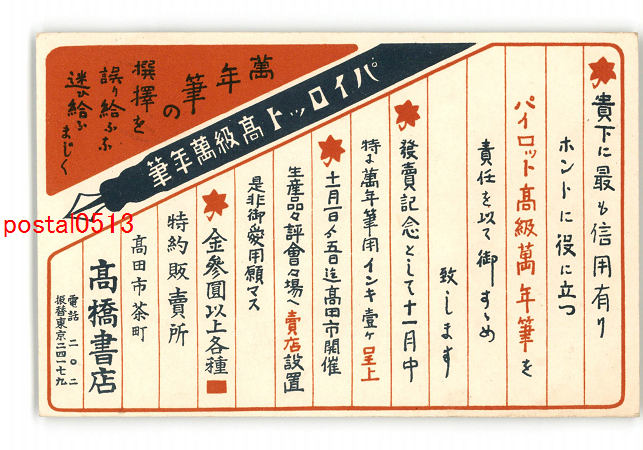 萬年筆の
撰擇を
誤り給ふな
迷ひ給ふ
まじく
パイロット高級萬年筆
貴下に最も信用有り
ホントに役に立つ
パイロット高級萬年筆を
責任を以て御すゝめ
致します
發賣記念として十一月中
特に萬年筆用インキ壹ヶ呈上
十一月一日ゟ五日迄髙田市開催
生産品々評會々場へ賣店設置
是非御愛用願マス
金參圓以上各種
特約販賣所
髙田市茶町
髙橋書店
電話 二〇二
振替東京二四一七九
postal0513